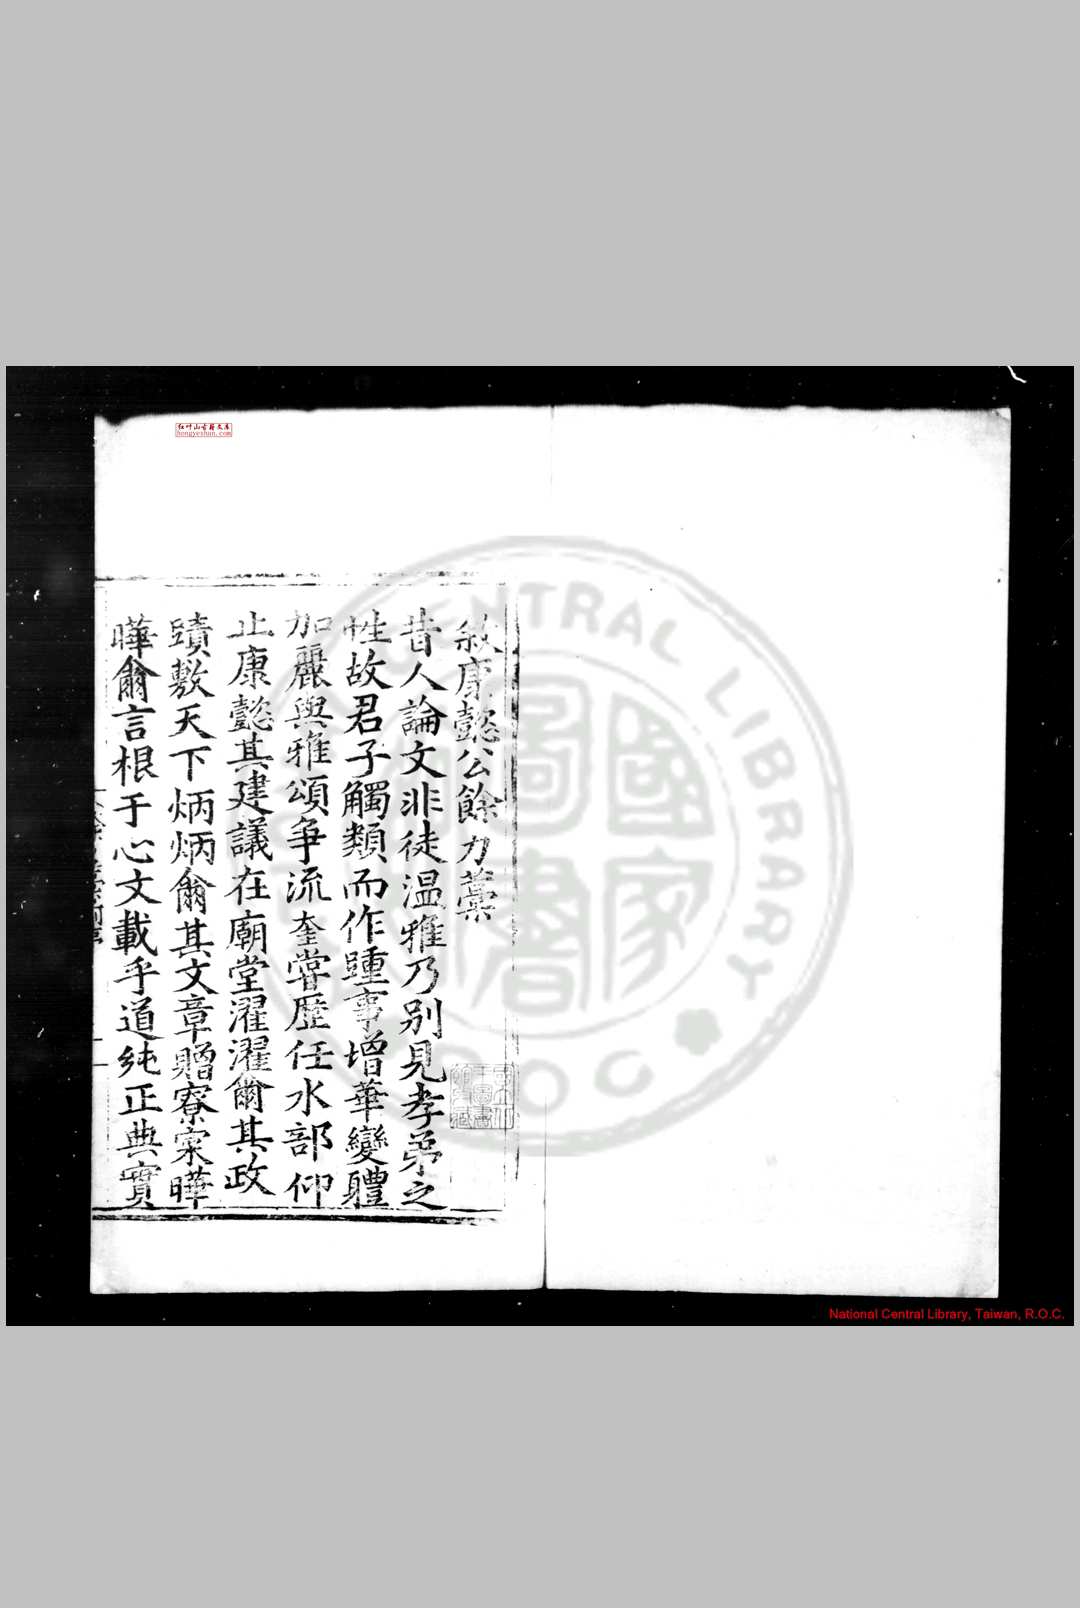 敘康懿公餘力藁
昔人論文非徒温雅乃別見孝弟之
性故君子觸類而作踵事增華變軆
加麗與雅頌爭流奎嘗歷任水部仰
止康懿其建議在廟堂濯濯爾其政
蹟敷天下炳炳爾其文章贈寮寀曄
曄爾言根于心文載乎道純正典實
红叶山古籍文库
hongyeshan.com
NATIONAL CENTRAL LIBRARY
國家圖書館
ROC
National Central Library, Taiwan, R.O.C.